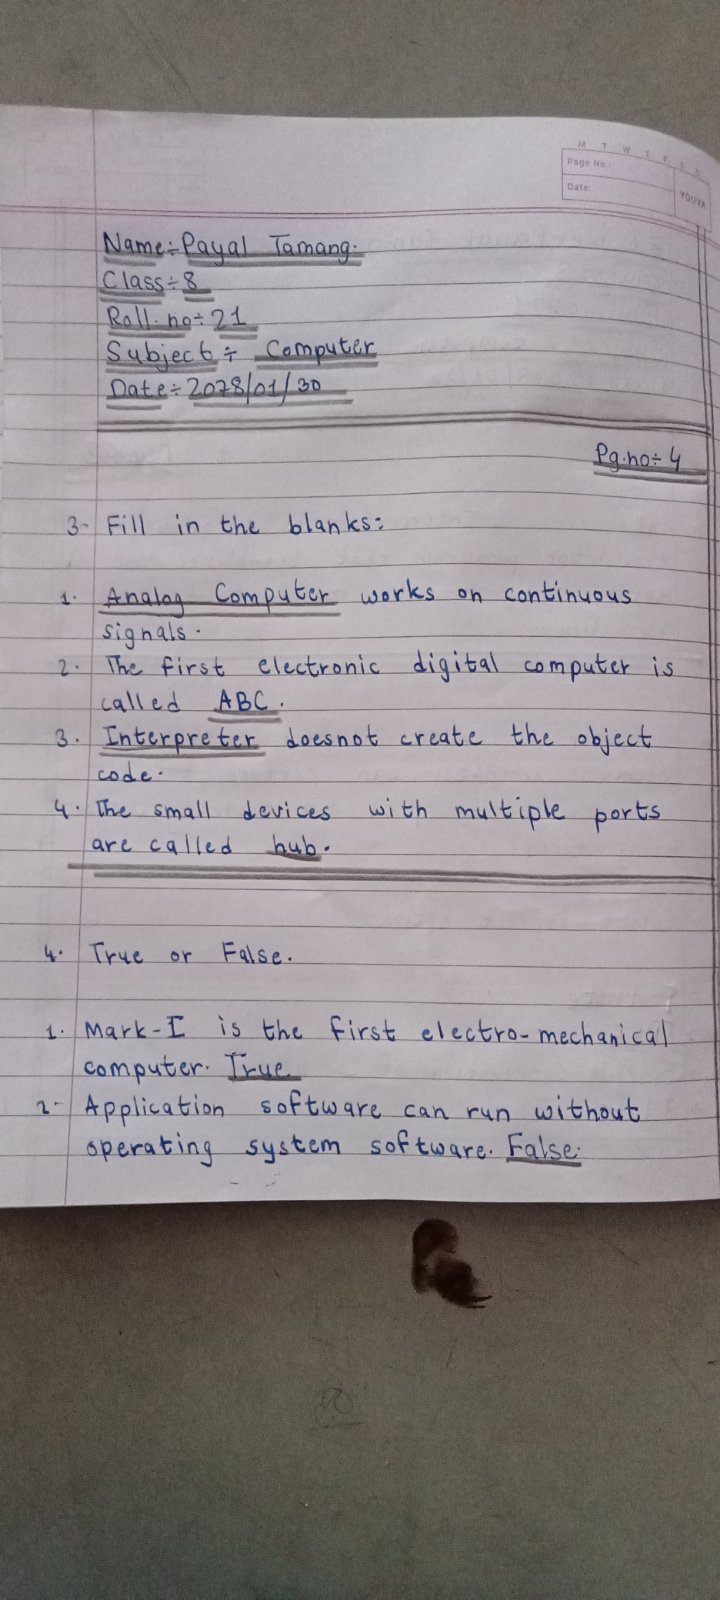 M T W T F S S
Page No.:
Date:
YOUVA
Name:- Payal Tamang.
Class:- 8
Roll. no:- 21
Subject :- Computer
Date:- 2078/01/30
Pg.no:- 4
3- Fill in the blanks:
1. Analog Computer works on continuous
signals.
2. The first electronic digital computer is
called ABC.
3. Interpreter doesnot create the object
code.
4. The small devices with multiple ports
are called hub.
4. True or False.
1. Mark-I is the first electro-mechanical
computer. True
2- Application software can run without
operating system software. False.